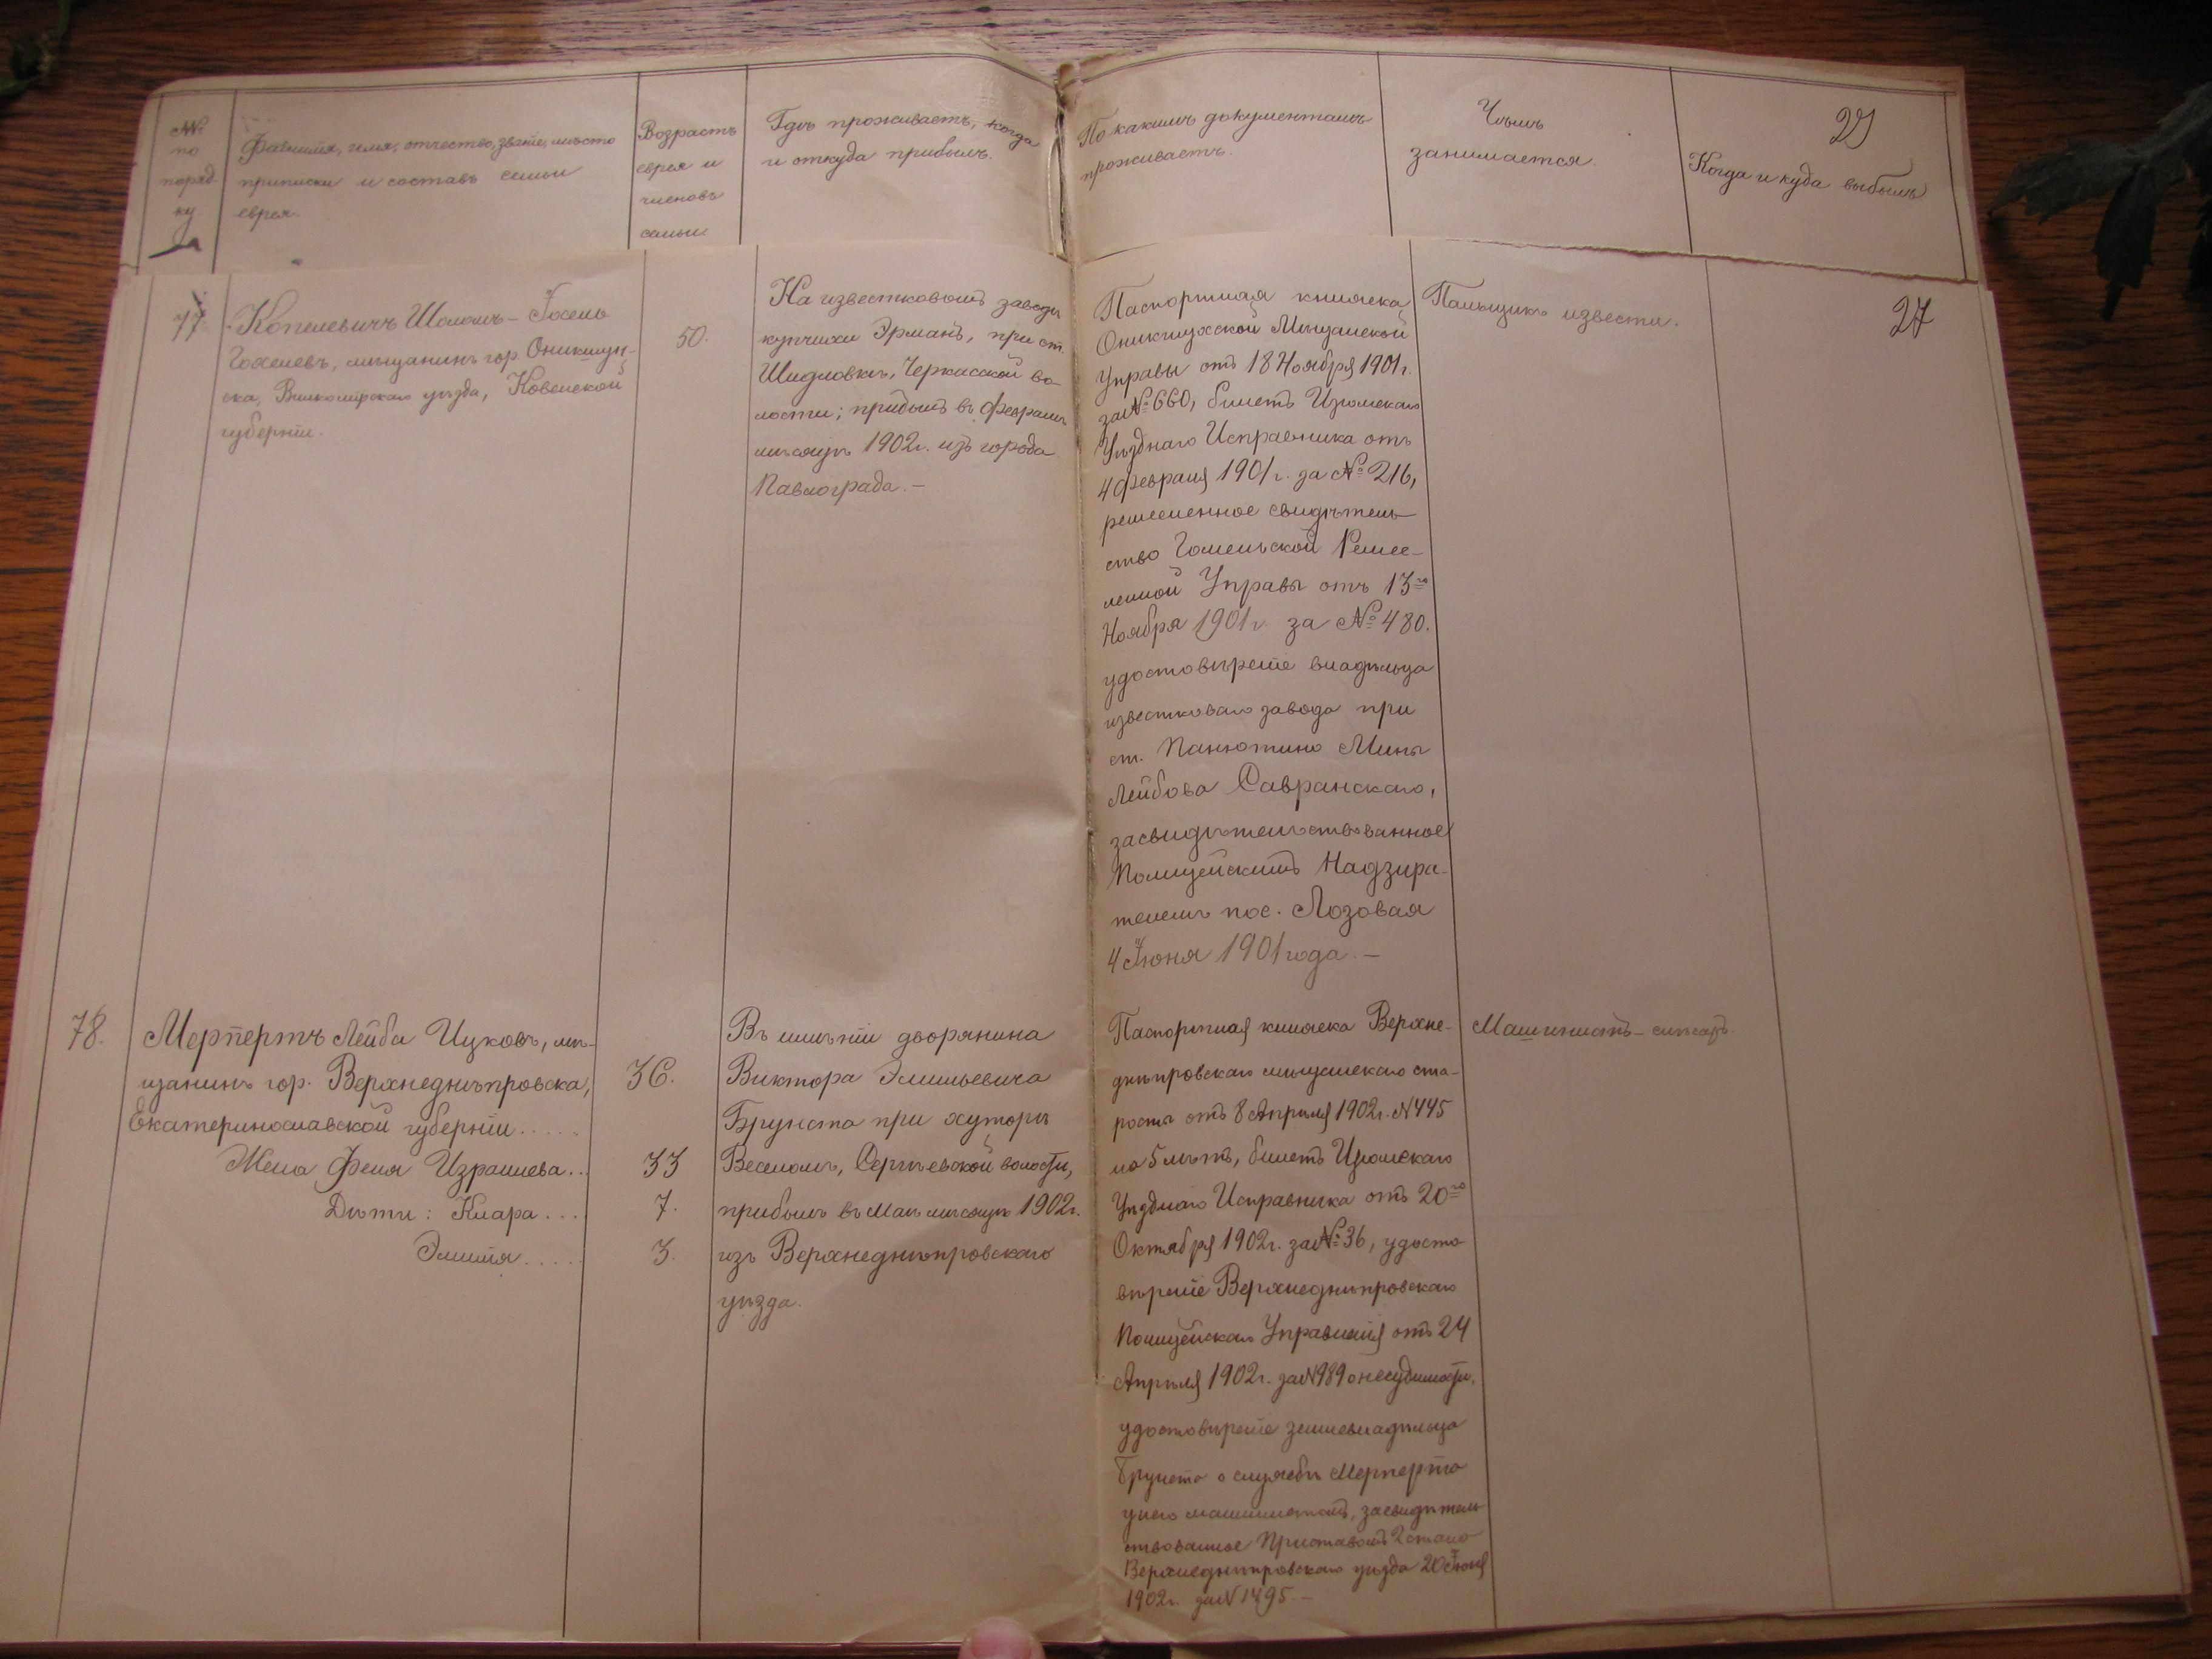 №
по
поряд-
ку.
Фамилія, имя, отчество, званіе, мѣсто
приписки и составъ семьи
еврея.
Возрастъ
еврея и
членовъ
семьи.
Гдѣ проживаетъ, когда
и откуда прибылъ.
По какимъ документамъ
проживаетъ.
Чѣмъ
занимается
29
Когда и куда выбылъ
77
Копелевичъ Шоломъ-Іохель
Іохелевъ, мѣщанинъ гор. Оникшты-
ска, Вилкомірскаго уѣзда, Ковенской
губерніи.
50.
На известковомъ заводѣ
купчихи Эрманъ, при ст.
Шидловкѣ, Черкасской во-
лости; прибылъ въ Февралѣ
мѣсяцѣ 1902г. изъ города
Павлограда.-
Паспортная книжка
Оникштской Мѣщанской
Управы отъ 18 Ноября 1901г.
за № 660, билетъ Изюмскаго
Уѣзднаго Исправника отъ
4 Февраля 1901г. за № 216,
ремесленное свидѣтель-
ство Гомельской Ремес-
ленной Управы отъ 13го
Ноября 1901г. за № 480.
удостовѣреніе владѣльца
известковаго завода при
ст. Панютино Мины
Лейбова Савранскаго,
засвидѣтельствованное
Полицейскимъ Надзира-
телемъ пос. Лозовая
4 Іюня 1901 года.-
Пальщикъ извести.
27
78.
Мерпертъ Лейба Ицковъ, мѣ-
щанинъ гор. Верхнеднѣпровска,
Екатеринославской губерніи.....
Жена Феня Израилева...
Дѣти: Клара...
Эмилія....
36.
33
7.
3.
Въ имѣніи дворянина
Виктора Эмильевича
Брунста при хуторѣ
Веселомъ, Сергѣевской волости,
прибылъ въ Маѣ мѣсяцѣ 1902г.
изъ Верхнеднѣпровскаго
уѣзда.
Паспортная книжка Верхне-
днѣпровскаго мѣщанскаго ста-
росты отъ 8 Апрѣля 1902г. №445
на 5 лѣтъ, билетъ Изюмскаго
Уѣзднаго Исправника отъ 20го
Октября 1902г. за № 36, удосто
вѣреніе Верхнеднѣпровскаго
Полицейскаго Управленія отъ 24
Апрѣля 1902г. за №989 о несудимости,
удостовѣреніе землевладѣльца
Брунста о службѣ Мерперта
у него машинистомъ, засвидѣтель
ствованное Приставомъ 2 стана
Верхнеднѣпровскаго уѣзда 20 Іюня
1902г. за № 1495.-
Машинистъ-слесарь.